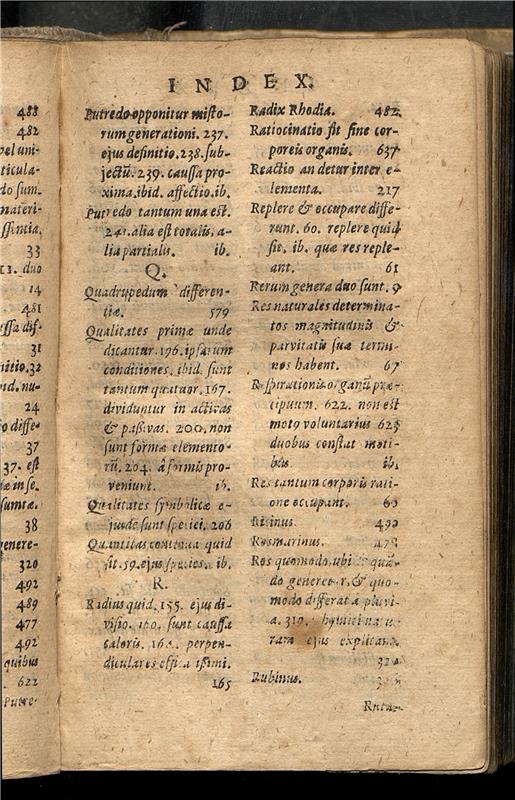 488
482
vel uni-
ticula-
do sum.
materi-
ssimia.
33
duo
14
481
ussa dif-
31
nitio. 32
nd. nu-
24
io diffe-
37
37. est
iæ in se.
sumtæ.
38
genere-
320
492
489
477
492
quibus
622
Putre-
INDEX.
Putredo opponitur misto-
rum generationi. 237.
ejus definitio. 238. sub-
jectũ. 239. caussa pro-
xima. ibid. affectio. ib.
Putredo tantum una est.
241. alia est totalis, a-
lia partialis. ib.
Q.
Quadrupedum differen-
tiæ. 579
Qualitates primæ unde
dicantur. 196. ipsarum
conditiones. ibid. sunt
tantum quatuor. 167.
dividuntur in activas
& passivas. 200. non
sunt formæ elemento-
rũ. 204. à formis pro-
veniunt. ib.
Qualitates symbolicæ e-
jusde sunt speciei. 206
Quantitas continua quid
sit. 59. ejus species. ib.
R.
Radius quid. 155. ejus di-
visio. 160. sunt caussa
caloris. 164. perpen-
diculares efficacissimi.
165
Radix Rhodia. 482.
Ratiocinatio fit sine cor-
poreis organis. 637
Reactio an detur inter e-
lementa. 217
Replere & occupare diffe-
runt. 60. replere quid
sit. ib. quæ res reple-
ant. 61
Rerum genera duo sunt. 9
Res naturales determina-
tos magnitudinis &
parvitatis suæ termi-
nos habent. 67
Respirationis organũ præ-
cipuum. 622. non est
moto voluntarius 623
duobus constat moti-
bus. ib.
Res tantum corporis rati-
one occupant. 60
Ricinus. 490
Rosmarinus.
Ros quomodo, ubi & quã-
do generetur, & quo-
modo differat a pluvi-
a. 319.
ejus explicatur.
Rubinus.
Ruta.